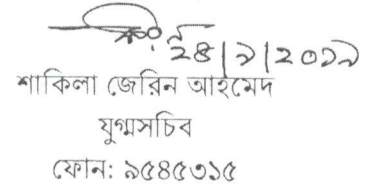 ২৪|৯|২০১৯
শাকিলা জেরিন আহমেদ
যুগ্মসচিব
ফোন: ৯৫৪৫৩১৫